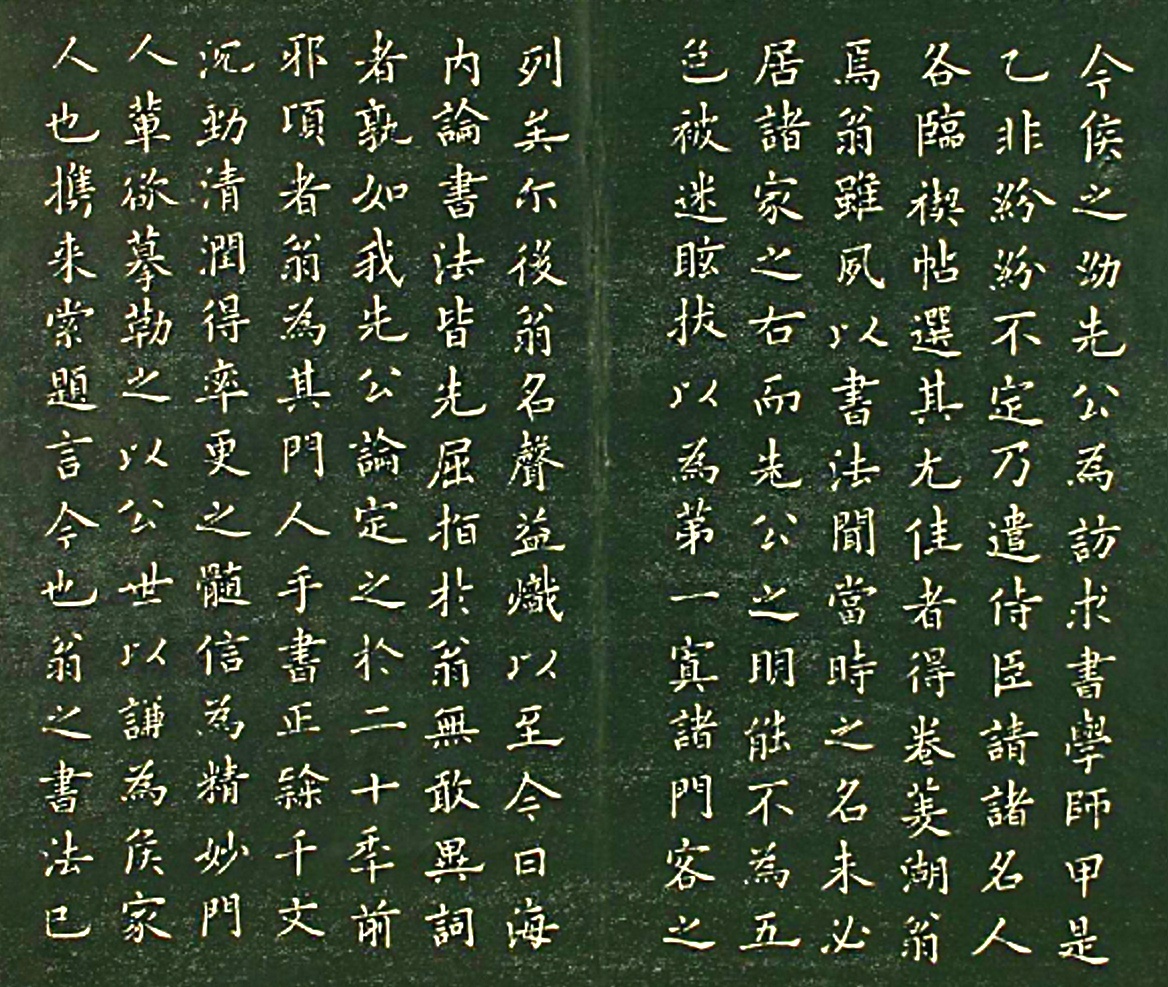 今侯之幼先公為訪求書學師甲是
乙非紛紛不定乃遣侍臣請諸名人
各臨禊帖選其尤佳者得卷菱湖翁
焉翁雖夙以書法聞當時之名未必
居諸家之右而先公之明能不為五
色被迷眩拔以為第一寘諸門客之
列矣尓後翁名聲益熾以至今日海
内論書法皆先屈指於翁無敢異詞
者孰如我先公論定之於二十年前
邪頃者翁為其門人手書正隸千文
沉勁清潤得率更之髓信為精妙門
人輩欲摹勒之以公世以謙為侯家
人也携来索題言今也翁之書法已